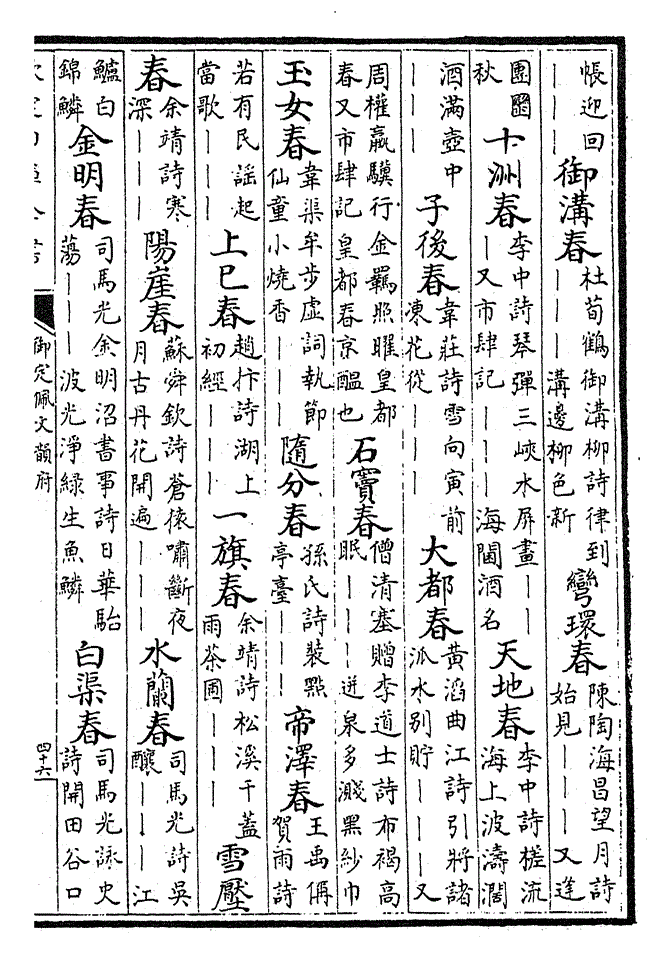 帳迎回｜｜｜御溝春杜荀鶴御溝柳詩律到｜｜｜溝邊柳色新彎環春陳陶海昌望月詩始見｜｜｜又逢
團圞秋十洲春李中詩琴彈三峽水屏畫｜｜｜又市肆記｜｜｜海閫酒名天地春李中詩槎流海上波濤濶
｜｜｜酒滿壺中子後春韋莊詩雪向寅前凍花從｜｜｜大都春黃滔曲江詩引將諸派水別貯｜｜｜又
周權羸驥行金羈照曜皇都春又市肆記皇都春京醞也石竇春僧清塞贈李道士詩布褐高眠｜｜｜迸泉多濺黑紗巾
玉女春韋渠牟步虛詞執節仙童小燒香｜｜｜隨分春孫氏詩裝點亭臺｜｜｜帝澤春王禹偁賀雨詩
若有民謡起當歌｜｜｜上巳春趙抃詩湖上初經｜｜｜一旗春余靖詩松溪千蓋雨茶圃｜｜｜雪壓
春余靖詩寒深｜｜｜陽崖春蘇舜欽詩蒼猿嘯斷夜月古丹花開遍｜｜｜水蘭春司馬光詩吳釀｜｜｜江
鱸白錦鱗金明春司馬光金明沼書事詩日華駘蕩｜｜｜波光淨綠生魚鱗白渠春司馬光詠史詩開田谷口
御定佩文韻府
四十六